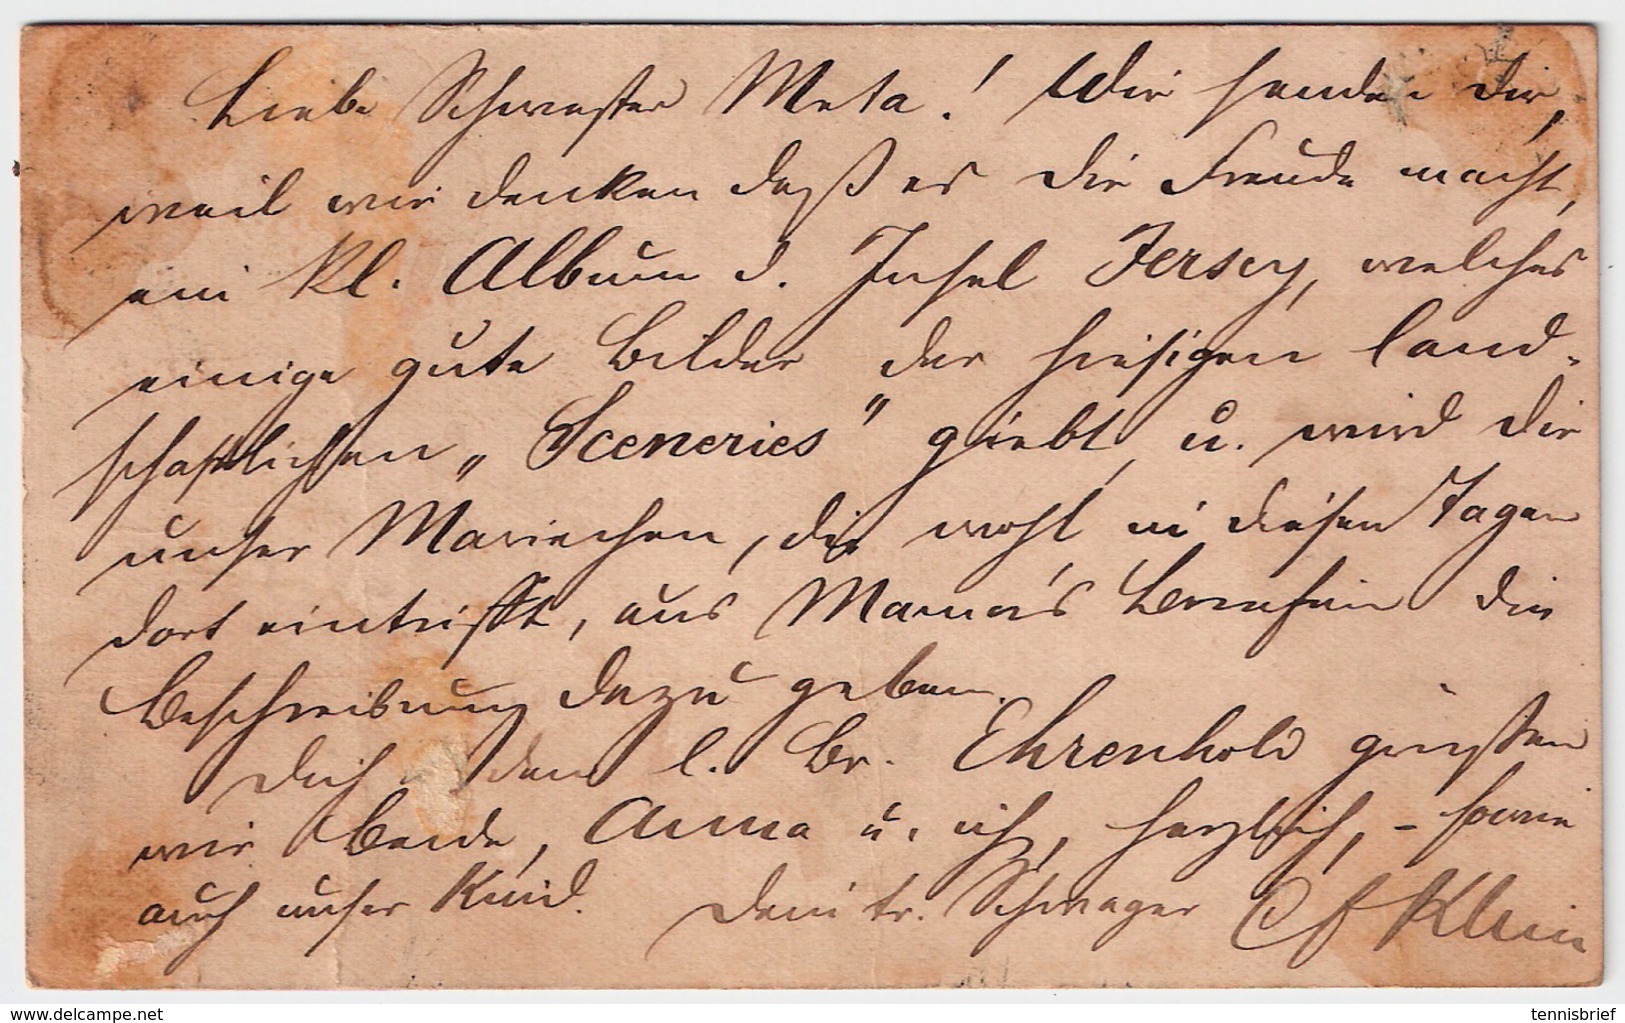 Liebe Schwester Meta! Wir senden Dir,
weil wir denken daß es Dir Freude macht,
ein kl. Album d. Insel Jersey, welches
einige gute Bilder der hiesigen land-
schaftlichen „Sceneries" giebt, u. wird Dir
unser Mariechen, die wohl in diesen Tagen
dort eintrifft, aus Mama's die
Beschreibung dazu geben.
Dich u. den l. Br. Ehrenhold grüßen
wir beide, Anna u. ich, herzlich, – sowie
auch unser Kind. Dein tr. Schwager CF Klein
delcampe.net
tennisbrief